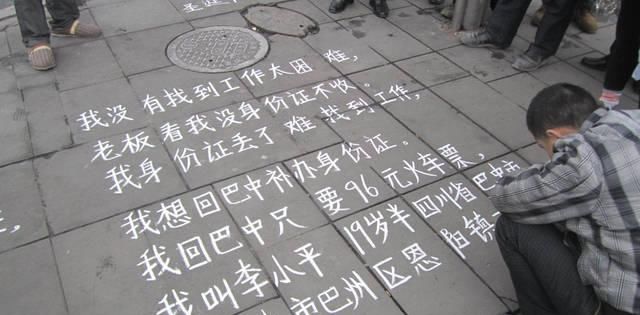 我没有找到工作太困难，
老板看我没身份证不收。
我身份证丢了难找到工作，
我想回巴中补办身份证。
我回巴中只要96元火车票，
我叫李小平19岁半四川省巴中
市巴州区恩阳镇